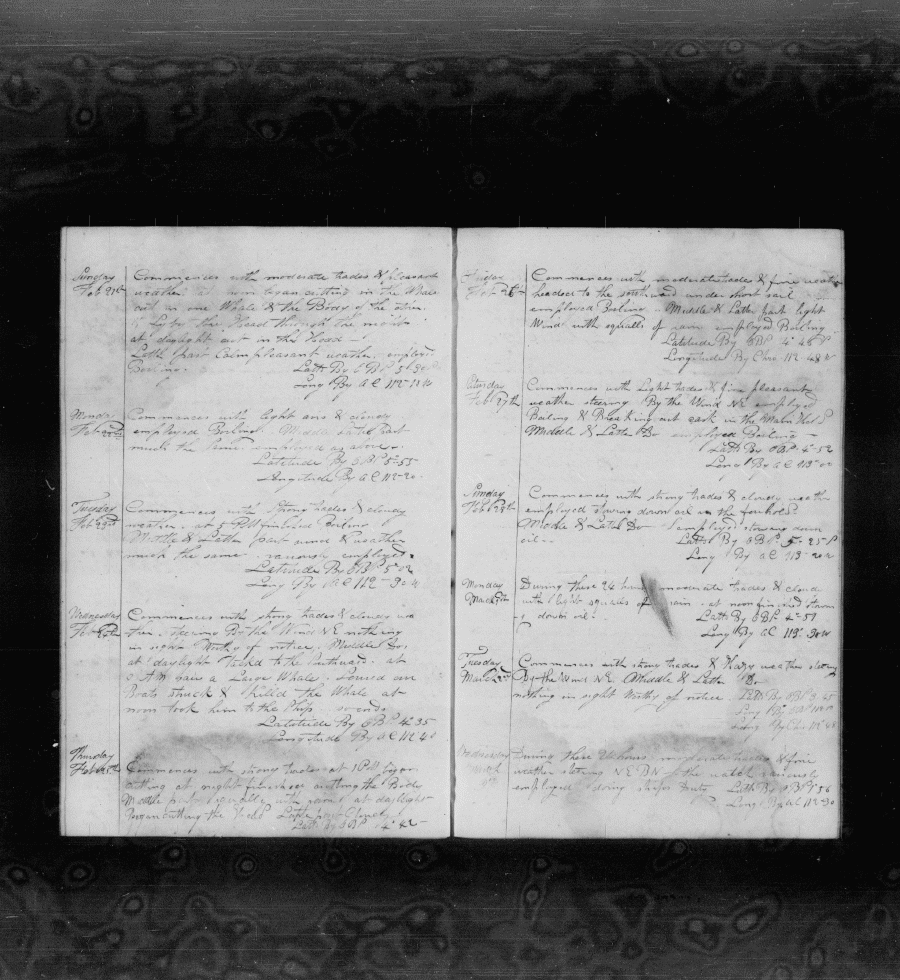 Sunday
Feb 21st
Commences with moderate trades & pleasant
weather at began cutting in the Whale
cut in one Whale & the Body of the
Lay by the Head through the night
at daylight cut in the Head
Latter part pleasant weather employed
Boiling Latt By OBS 5
Long By a C 112
Monday
Feb 22nd
Commences with light airs & cloudy
employed Boiling Middle & Latter Part
much the same employed as above
Latitude By OBS 5-55
Longitude By a C 112-20
Tuesday
Feb 23rd
Commences with Strong trades & cloudy
weather at 5 PM finished Boiling
Middle & Latter part wind & weather
much the same variously employed
Latitude By OBS 5-02
Long By a C 112-30 W
Wednesday
Feb 24th
Commences with strong trades & cloudy
steering By the Wind NE nothing
in sight Worthy of notice Middle Do
at daylight Tacked to the Southward at
AM saw a Large Whale Lowered our
Boats struck & killed the Whale at
noon took him to the Ship so ends
Latitude By OBS 4-35
Longitude By a C 112-45
Thursday
Feb 25th
Commences with strong trades at 1 PM began
cutting at night finished cutting the Body
Middle part squally with rain at daylight
began cutting the Head Latter part Cloudy
Latt By OBS 4-42
Friday
Feb 26th
Commences with moderate trades & fine weather
headed to the southward under short sail
employed Boiling Middle & Latter part light
Wind with squalls of rain employed Boiling
Latitude By OBS 4-48 S
Longitude By Chro 112-48 W
Saturday
Feb 27th
Commences with Light trades & fine pleasant
weather steering By the Wind NE employed
Boiling & Breaking out cask in the Main Hold
Middle & Latter Do employed Boiling
Latt By OBS 4-52
Long By a C 113-00
Sunday
Feb 28th
Commences with strong trades & cloudy weather
employed stowing down oil in the forehold
Middle & Latter Do employed stowing down
oil Latt By OBS 5-25 S
Long By a C 113-20 W
Monday
March 1st
During these 24 hours moderate trades & cloud
with light squalls of rain at noon finished stowing
down oil Latt By OBS 4-57
Long By a C 113-30 W
Tuesday
March 2nd
Commences with strong trades & Hazy weather steering
By the Wind NE Middle & Latter Do
nothing in sight Worthy of notice Latt By OBS 3-45
Long By
Long By Chro 112-45
Wednesday
March
During these 24 hours moderate trades & fine
weather steering NE BN the watch variously
employed doing ships duty Latt By OBS 1-56
Long By a C 112-30